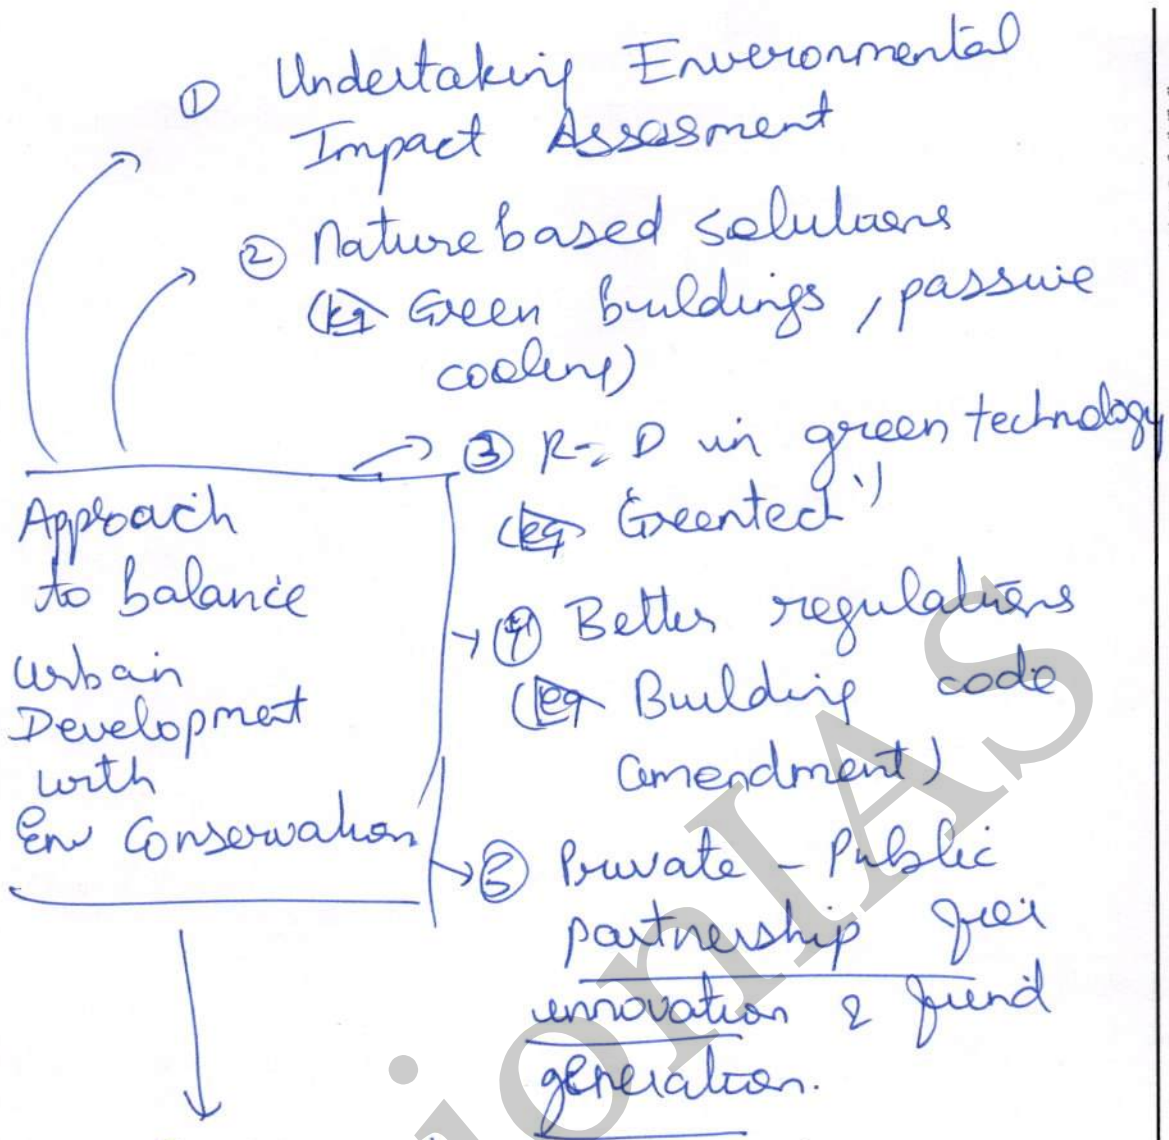 ① Undertaking Environmental
Impact Assesment
② Nature based solutions
(eg Green buildings, passive
cooling)
③ R & D in green technology
(eg Greentech)
④ Better regulations
(eg Building code
amendment)
⑤ Private - Public
partnership for
innovation & fund
generation.
Approach
to balance
urban
Development
with
Env Conservation
ionIAS